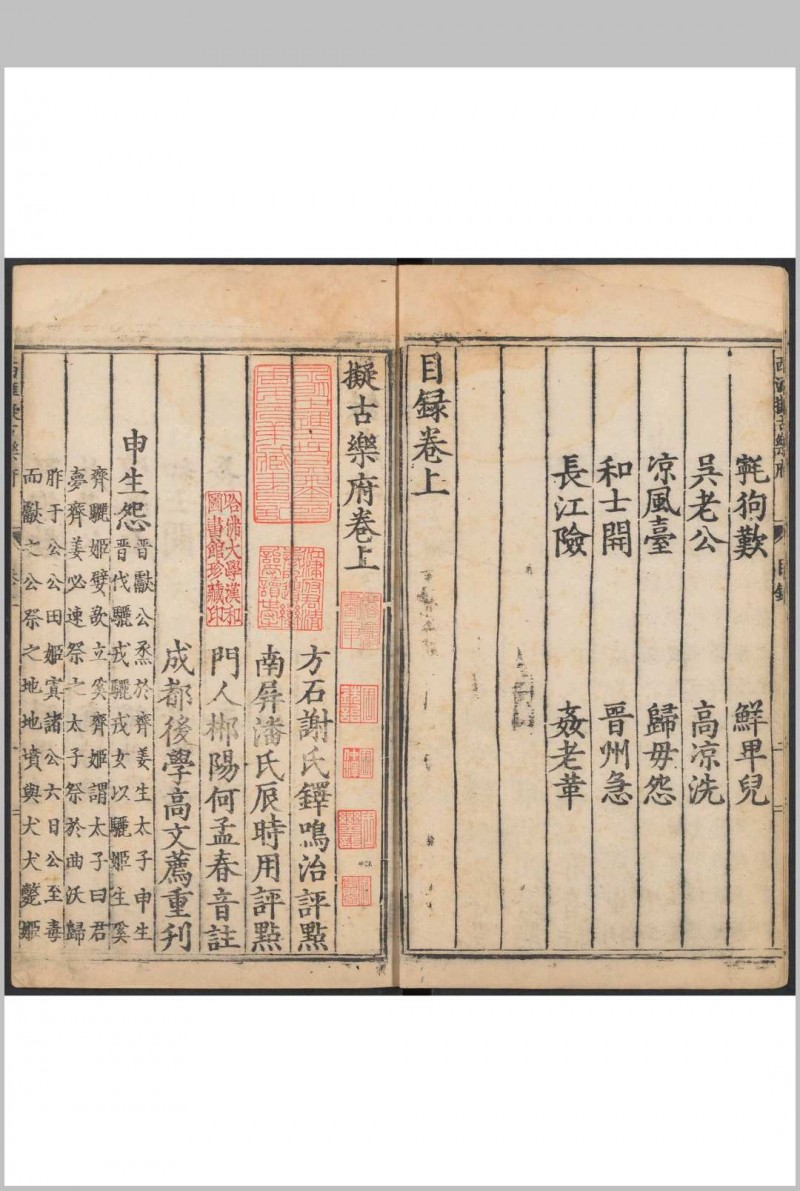 氈狗歎
鮮卑兒
吳老公
高凉洗
凉風臺
歸母怨
和士開
晉州急
長江險
姦老革
目録卷上
擬古樂府卷上
方石謝氏鐸鳴治評點
南屏潘氏辰時用評點
門人郴陽何孟春音註
成都後學高文薦重刋
哈佛大學漢和圖書館珍藏印
申生怨
晉獻公烝於齊姜生太子申生
晉伐驪戎驪戎女以驪姬生奚
齊驪姬嬖欲立奚齊姬謂太子曰君
夢齊姜必速祭之太子祭於曲沃歸
胙于公公田姬寘諸公六日公至毒
而獻之公祭之地地墳與犬犬斃姬